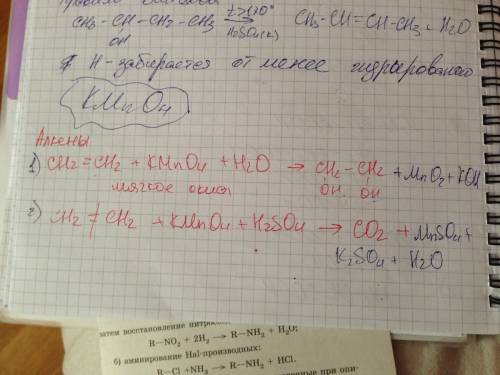 CH₃-CH-CH₂-CH₃ t>140° → H₂SO₄(к) CH₃-CH=CH-CH₃ + H₂O
OH
H-забирается от менее гидрированого
KMnO₄
Алкены
1) CH₂=CH₂ + KMnO₄ + H₂O → CH₂-CH₂ + MnO₂ + KOH
мягкое окисл OH OH
2) CH₂=CH₂ + KMnO₄ + H₂SO₄ → CO₂ + MnSO₄ +
K₂SO₄ + H₂O
затем восстановление нитрос
R—NO₂ + 2H₂ → R—NH₂ + H₂O;
б) аминирование Hal-производных:
R—Cl + NH₃ → R—NH₂ + HCl.
при опи-